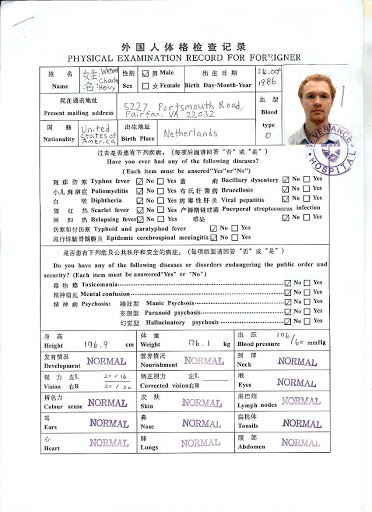 外国人体格检查记录
PHYSICAL EXAMINATION RECORD FOR FOREIGNER
姓 名 姓: 性别 男 Male 出 生 日 期 24, Oct
Name 名: Henry Sex 女 Female Birth Day-Month-Year 1986
现在通讯地址 5227, Portsmouth Road, 血 型
Present mailing address Fairfax, VA 22032 Blood type O
国 籍 United States of America 出生地址 Netherlands
Nationality Birth Place
SEVERANCE HOSPITAL
过去是否患有下列疾病: (每项后面请回答“否”或“是”)
Have you ever had any of the following diseases?
(Each item must be answered"Yes"or"No")
斑 疹 伤 寒 Typhus fever No Yes 菌 痢 Bacillary dysentery No Yes
小儿 麻 痹症 Poliomyelitis No Yes 布氏杆菌病 Brucellosis No Yes
白 喉 Diphtheria No Yes 病毒性肝炎 Viral hepatitis No Yes
猩 红 热 Scarlet fever No Yes 产褥期链球菌 Puerperal streptococcus infection
回 归 热 Relapsing fever No Yes 感染 No Yes
伤寒和付伤寒 Typhoid and paratyphod fever No Yes
流行性脑脊髓膜炎 Epidemic cerebrospinal meningitis No Yes
是否患有下列危及公共秩序和安全的病症: (每项后面请回答“否”或“是”)
Do you have any of the following diseases or disorders endangering the public order and
security? (Each item must be answered"Yes" or "No")
毒 物 瘾 Toxicomania No Yes
精神错乱 Mental confusion No Yes
精 神 病 Psychosis: 躁狂型 Manic Psychosis No Yes
妄想型 Paranoid psychosis No Yes
幻觉型 Hallucinatory psychosis No Yes
身 高 体 重 血 压 106/
Height 176.9 cm Weight 76.1 kg Blood pressure 60 mmHg
发育情况 营养情况 颈 部
Development NORMAL Nourishment NORMAL Neck NORMAL
视 力 左L 20/16 矫正视力 左L 眼
Vision 右R 20/20 Corrected vision右R Eyes NORMAL
辨色力 皮 肤 淋巴结
Colour sense NORMAL Skin NORMAL Lymph nodes NORMAL
耳 鼻 扁桃体
Ears NORMAL Nose NORMAL Tonsils NORMAL
心 肺 腹 部
Heart NORMAL Lungs NORMAL Abdomen NORMAL